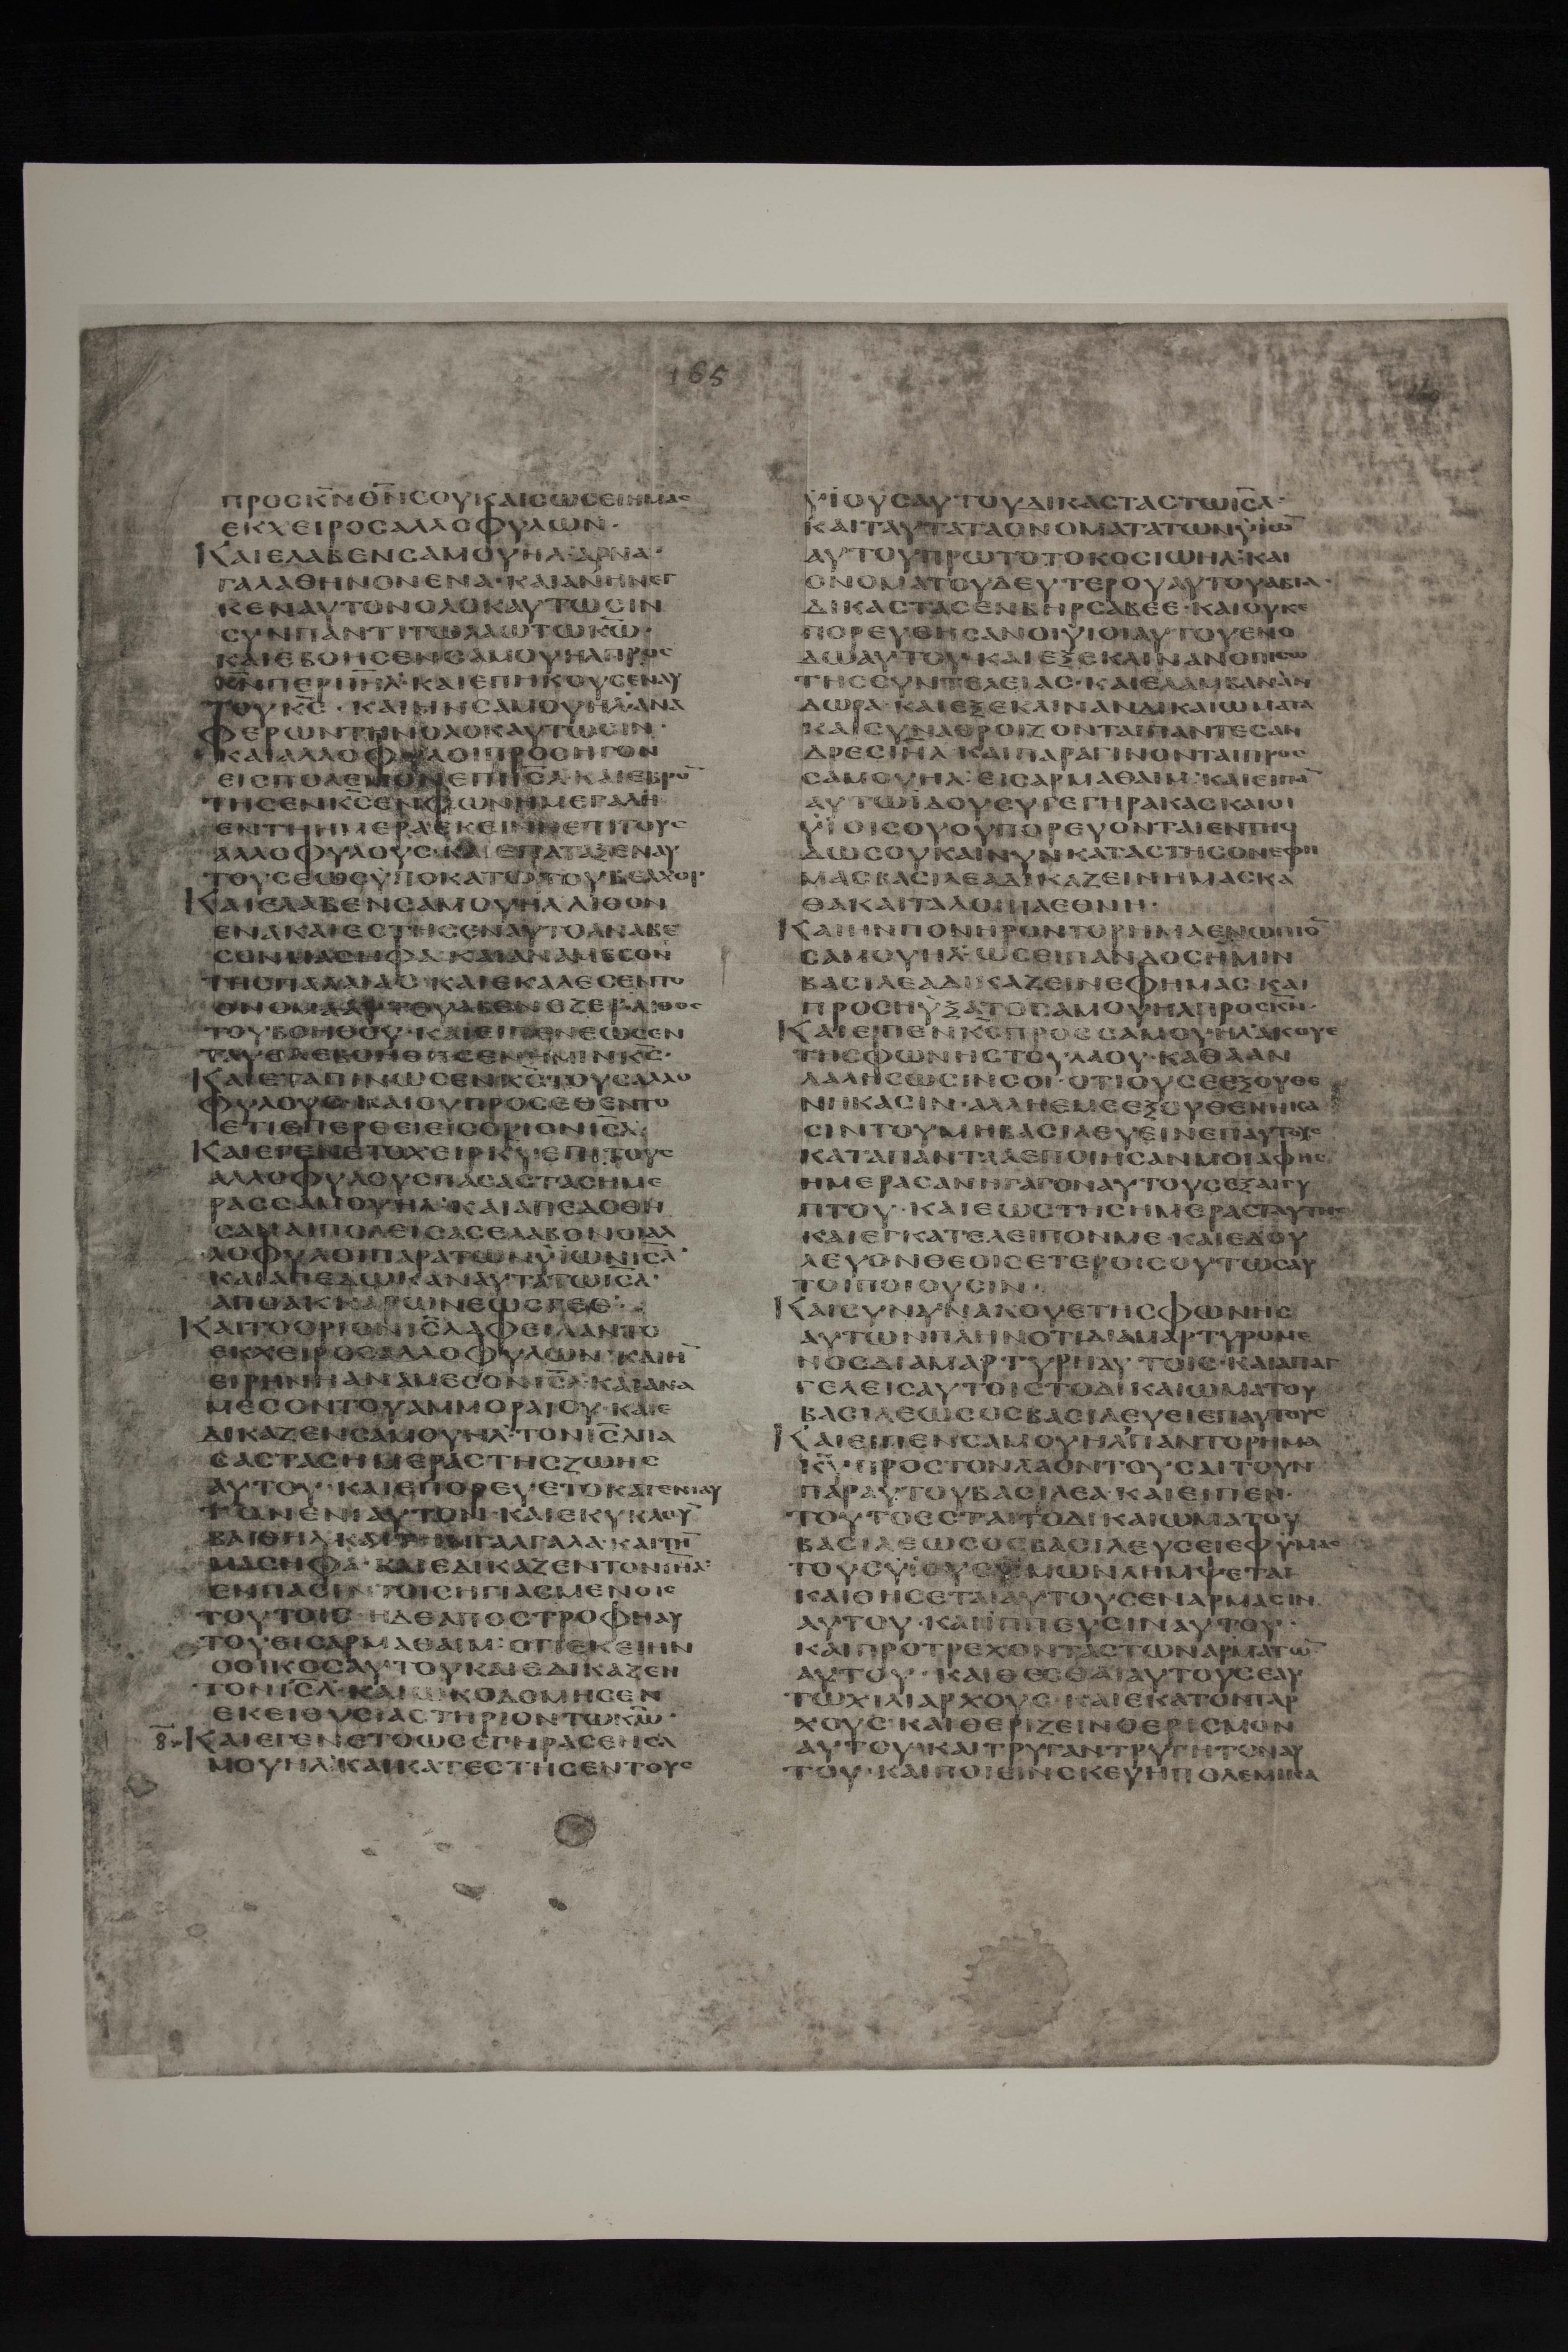 165
ΠΡΟΣΚ̅Ν̅Θ̅Ν̅ΣΟΥΚΑΙΣΩΣΕΙΗΜΑΣ
ΕΚΧΕΙΡΟΣΑΛΛΟΦΥΛΩΝ·
ΚΑΙΕΛΑΒΕΝΣΑΜΟΥΗΛ ΑΡΝΑ·
ΓΑΛΑΘΗΝΟΝΕΝΑ·ΚΑΙΑΝΗΝΕΓ
ΚΕΝΑΥΤΟΝΟΛΟΚΑΥΤΩΣΙΝ
ΣΥΝΠΑΝΤΙΤΩΛΑΩΤΩΚ̅Ω̅·
ΚΑΙΕΒΟΗΣΕΝΣΑΜΟΥΗΛΠΡΟΣ
Κ̅Ν̅ΠΕΡΙΙ̅Η̅Λ̅·ΚΑΙΕΠΗΚΟΥΣΕΝΑΥ
ΤΟΥΚ̅Σ̅·ΚΑΙΗΝΣΑΜΟΥΗΛ ΑΝΑ
ΦΕΡΩΝΤΗΝΟΛΟΚΑΥΤΩΣΙΝ·
ΚΑΙΑΛΛΟΦΥΛΟΙΠΡΟΣΗΓΟΝ
ΕΙΣΠΟΛΕΜΟΝΕΠΙΙ̅Σ̅Λ̅·ΚΑΙΕΒΡΟ̅
ΤΗΣΕΝΚ̅Σ̅ΕΝΦΩΝΗΜΕΓΑΛΗ
ΕΝΤΗΗΜΕΡΑΕΚΕΙΝΗΕΠΙΤΟΥΣ
ΑΛΛΟΦΥΛΟΥΣ·ΚΑΙΕΠΑΤΑΞΕΝΑΥ
ΤΟΥΣΕΩΣΫΠΟΚΑΤΩΤΟΥΒΕΛΧΟΡ·
ΚΑΙΕΛΑΒΕΝΣΑΜΟΥΗΛ ΛΙΘΟΝ
ΕΝΑΚΑΙΕΣΤΗΣΕΝΑΥΤΟΑΝΑΜΕ
ΣΟΝΜΑΣΗΦΑ·ΚΑΙΑΝΑΜΕΣΟΝ
ΤΗΣΠΑΛΑΙΑΣ·ΚΑΙΕΚΑΛΕΣΕΝΤΟ
ΟΝΟΜΑΑΥΤΟΥΑΒΕΝΕΖΕΡ ΛΙΘΟΣ
ΤΟΥΒΟΗΘΟΥ·ΚΑΙΕΙΠΕΝΕΩΣΕΝ
ΤΑΥΘΑΕΒΟΗΘΗΣΕΝΗΜΙΝΚ̅Σ̅·
ΚΑΙΕΤΑΠΙΝΩΣΕΝΚ̅Σ̅ΤΟΥΣΑΛΛΟ
ΦΥΛΟΥΣ·ΚΑΙΟΥΠΡΟΣΕΘΕΝΤΟ
ΕΤΙΕΠΕΡΘΕΙΕΙΣΟΡΙΟΝΙ̅Σ̅Λ̅·
ΚΑΙΕΓΕΝΕΤΟΧΕΙΡΚ̅Υ̅ΕΠΙΤΟΥΣ
ΑΛΛΟΦΥΛΟΥΣΠΑΣΑΣΤΑΣΗΜΕ
ΡΑΣΣΑΜΟΥΗΛ·ΚΑΙΑΠΕΔΟΘΗ
ΣΑΝΑΙΠΟΛΕΙΣΑΣΕΛΑΒΟΝΟΙΑΛ
ΛΟΦΥΛΟΙΠΑΡΑΤΩΝΫΙΩΝΙ̅Σ̅Λ̅·
ΚΑΙΑΠΕΔΩΚΑΝΑΥΤΑΤΩΙ̅Σ̅Λ̅·
ΑΠΟΑΚΚΑΡΩΝΕΩΣΓΕΘ·
ΚΑΙΤΟΟΡΙΟΝΙ̅Σ̅Λ̅ΑΦΕΙΛΑΝΤΟ
ΕΚΧΕΙΡΟΣΑΛΛΟΦΥΛΩΝ·ΚΑΙΗ̅
ΕΙΡΗΝΗΑΝΑΜΕΣΟΝΙ̅Σ̅Λ̅·ΚΑΙΑΝΑ
ΜΕΣΟΝΤΟΥΑΜΜΟΡΑΙΟΥ·ΚΑΙΕ
ΔΙΚΑΖΕΝΣΑΜΟΥΗΛ·ΤΟΝΙ̅Σ̅Λ̅ΠΑ
ΣΑΣΤΑΣΗΜΕΡΑΣΤΗΣΖΩΗΣ
ΑΥΤΟΥ·ΚΑΙΕΠΟΡΕΥΕΤΟΚΑΤΕΝΙΑΥ
ΤΟΝΕΝΙΑΥΤΟΝ·ΚΑΙΕΚΥΚΛΟΥ̅
ΒΑΙΘΗΛΚΑΙΤΗΝΓΑΛΓΑΛΑ·ΚΑΙΤΗ̅
ΜΑΣΗΦΑ·ΚΑΙΕΔΙΚΑΖΕΝΤΟΝΙ̅Η̅Λ̅·
ΕΝΠΑΣΙΝΤΟΙΣΗΓΙΑΣΜΕΝΟΙΣ
ΤΟΥΤΟΙΣ·ΗΔΕΑΠΟΣΤΡΟΦΗΑΥ
ΤΟΥΕΙΣΑΡΜΑΘΑΙΜ·ΟΤΙΕΚΕΙΗΝ
ΟΟΙΚΟΣΑΥΤΟΥΚΑΙΕΔΙΚΑΖΕΝ
ΤΟΝΙ̅Σ̅Λ̅·ΚΑΙΩΚΟΔΟΜΗΣΕΝ
ΕΚΕΙΘΥΣΙΑΣΤΗΡΙΟΝΤΩΚ̅Ω̅·
8·ΚΑΙΕΓΕΝΕΤΟΩΣΕΓΗΡΑΣΕΝΣΑ
ΜΟΥΗΛ·ΚΑΙΚΑΤΕΣΤΗΣΕΝΤΟΥΣ
ΫΙΟΥΣΑΥΤΟΥΔΙΚΑΣΤΑΣΤΩΙ̅Σ̅Λ̅·
ΚΑΙΤΑΥΤΑΤΑΟΝΟΜΑΤΑΤΩΝΫΙΩ̅
ΑΥΤΟΥΠΡΩΤΟΤΟΚΟΣΙΩΗΛ·ΚΑΙ
ΟΝΟΜΑΤΟΥΔΕΥΤΕΡΟΥΑΥΤΟΥΑΒΙΑ·
ΔΙΚΑΣΤΑΣΕΝΒΗΡΣΑΒΕΕ·ΚΑΙΟΥΚΕ
ΠΟΡΕΥΘΗΣΑΝΟΙΫΙΟΙΑΥΤΟΥΕΝΟ
ΔΩΑΥΤΟΥ·ΚΑΙΕΞΕΚΛΙΝΑΝΟΠΙΣΩ
ΤΗΣΣΥΝΤΕΛΕΙΑΣ·ΚΑΙΕΛΑΜΒΑΝΑΝ
ΔΩΡΑ·ΚΑΙΕΞΕΚΛΙΝΑΝΔΙΚΑΙΩΜΑΤΑ
ΚΑΙΣΥΝΑΘΡΟΙΖΟΝΤΑΙΠΑΝΤΕΣΑΝ
ΔΡΕΣΙ̅Η̅Λ̅·ΚΑΙΠΑΡΑΓΙΝΟΝΤΑΙΠΡΟΣ
ΣΑΜΟΥΗΛ·ΕΙΣΑΡΜΑΘΑΙΜ·ΚΑΙΕΙΠΑ̅
ΑΥΤΩΙΔΟΥΣΥΓΕΓΗΡΑΚΑΣΚΑΙΟΙ
ΫΙΟΙΣΟΥΟΥΠΟΡΕΥΟΝΤΑΙΕΝΤΗΟ
ΔΩΣΟΥΚΑΙΝΥΝΚΑΤΑΣΤΗΣΟΝΕΦΗ
ΜΑΣΒΑΣΙΛΕΑΔΙΚΑΖΕΙΝΗΜΑΣΚΑ
ΘΑΚΑΙΤΑΛΟΙΠΑΕΘΝΗ·
ΚΑΙΗΝΠΟΝΗΡΟΝΤΟΡΗΜΑΕΝΩΠΙΟ̅
ΣΑΜΟΥΗΛ·ΩΣΕΙΠΑΝΔΟΣΗΜΙΝ
ΒΑΣΙΛΕΑΔΙΚΑΖΕΙΝΕΦΗΜΑΣ·ΚΑΙ
ΠΡΟΣΗΫΞΑΤΟΣΑΜΟΥΗΛΠΡΟΣΚ̅Ν̅·
ΚΑΙΕΙΠΕΝΚ̅Σ̅ΠΡΟΣΣΑΜΟΥΗΛ·ΑΚΟΥΕ
ΤΗΣΦΩΝΗΣΤΟΥΛΑΟΥ·ΚΑΘΑΑΝ
ΛΑΛΗΣΩΣΙΝΣΟΙ·ΟΤΙΟΥΣΕΕΞΟΥΘΕ
ΝΗΚΑΣΙΝ·ΑΛΛΗΕΜΕΕΞΟΥΘΕΝΗΚΑ
ΣΙΝΤΟΥΜΗΒΑΣΙΛΕΥΕΙΝΕΠΑΥΤΟΥΣ
ΚΑΤΑΠΑΝΤΑΑΕΠΟΙΗΣΑΝΜΟΙΑΦΗΣ
ΗΜΕΡΑΣΑΝΗΓΑΓΟΝΑΥΤΟΥΣΕΞΑΙΓΥ
ΠΤΟΥ·ΚΑΙΕΩΣΤΗΣΗΜΕΡΑΣΤΑΥΤΗΣ
ΚΑΙΕΓΚΑΤΕΛΕΙΠΟΝΜΕ·ΚΑΙΕΔΟΥ
ΛΕΥΟΝΘΕΟΙΣΕΤΕΡΟΙΣΟΥΤΩΣΑΥ
ΤΟΙΠΟΙΟΥΣΙΝ·
ΚΑΙΣΥΝΥΝΑΚΟΥΕΤΗΣΦΩΝΗΣ
ΑΥΤΩΝΠΛΗΝΟΤΙΔΙΑΜΑΡΤΥΡΟΜΕ
ΝΟΣΔΙΑΜΑΡΤΥΡΗΑΥΤΟΙΣ·ΚΑΙΑΠΑΓ
ΓΕΛΕΙΣΑΥΤΟΙΣΤΟΔΙΚΑΙΩΜΑΤΟΥ
ΒΑΣΙΛΕΩΣΟΣΒΑΣΙΛΕΥΣΕΙΕΠΑΥΤΟΥΣ
ΚΑΙΕΙΠΕΝΣΑΜΟΥΗΛ ΠΑΝΤΟΡΗΜΑ
Κ̅Υ̅·ΠΡΟΣΤΟΝΛΑΟΝΤΟΥΣΑΙΤΟΥΝ
ΠΑΡΑΥΤΟΥΒΑΣΙΛΕΑ·ΚΑΙΕΙΠΕΝ·
ΤΟΥΤΟΕΣΤΑΙΤΟΔΙΚΑΙΩΜΑΤΟΥ
ΒΑΣΙΛΕΩΣΟΣΒΑΣΙΛΕΥΣΕΙΕΦΫΜΑΣ
ΤΟΥΣΫΙΟΥΣΫΜΩΝΛΗΜΨΕΤΑΙ
ΚΑΙΘΗΣΕΤΑΙΑΥΤΟΥΣΕΝΑΡΜΑΣΙΝ
ΑΥΤΟΥ·ΚΑΙΙΠΠΕΥΣΙΝΑΥΤΟΥ·
ΚΑΙΠΡΟΤΡΕΧΟΝΤΑΣΤΩΝΑΡΜΑΤΩ̅
ΑΥΤΟΥ·ΚΑΙΘΕΣΘΑΙΑΥΤΟΥΣΕΑΥ
ΤΩΧΙΛΙΑΡΧΟΥΣ·ΚΑΙΕΚΑΤΟΝΤΑΡ
ΧΟΥΣ·ΚΑΙΘΕΡΙΖΕΙΝΘΕΡΙΣΜΟΝ
ΑΥΤΟΥ·ΚΑΙΤΡΥΓΑΝΤΡΥΓΗΤΟΝΑΥ
ΤΟΥ·ΚΑΙΠΟΙΕΙΝΣΚΕΥΗΠΟΛΕΜΙΚΑ